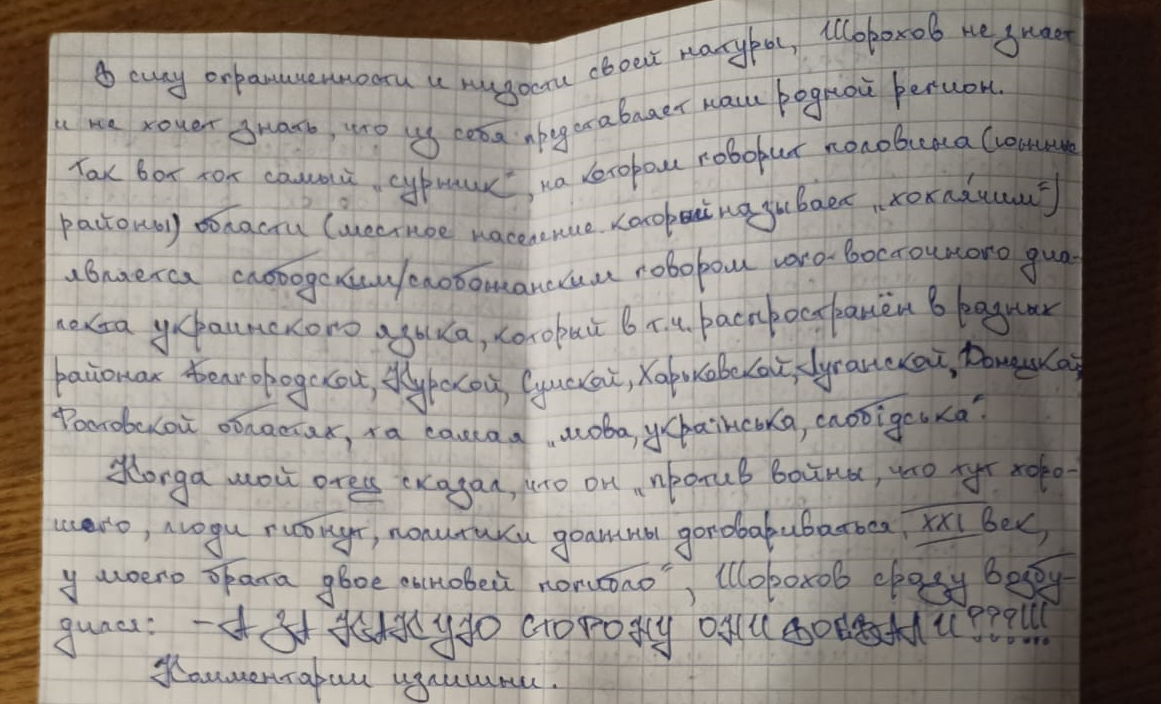 В силу ограниченности и низости своей натуры, Шорохов не знает
и не хочет знать, что из себя представлает наш родной регион.
Так вот тот самый „суржик“, на котором говорит половина (южные
районы) области (местное население который называет „хокля́чим“)
является слободским/слобожанским говором юго-восточного диа-
лекта украинского языка, который в т.ч. распространён в разных
районах Белгородской, Курской, Сумской, Харьковской, Луганской, Донецкой,
Ростовской областях, та самая „мова, українська, слобідська“.
Когда мой отец сказал, что он „против войны, что тут хоро-
шего, люди гибнут, политики должны договариваться, XXI век,
у моего брата двое сыновей погибло“, Шорохов сразу возбу-
дился: – А ЗА КАКУЮ СТОРОНУ ОНИ ВОЕВАЛИ???!!!
Комментарии излишни.